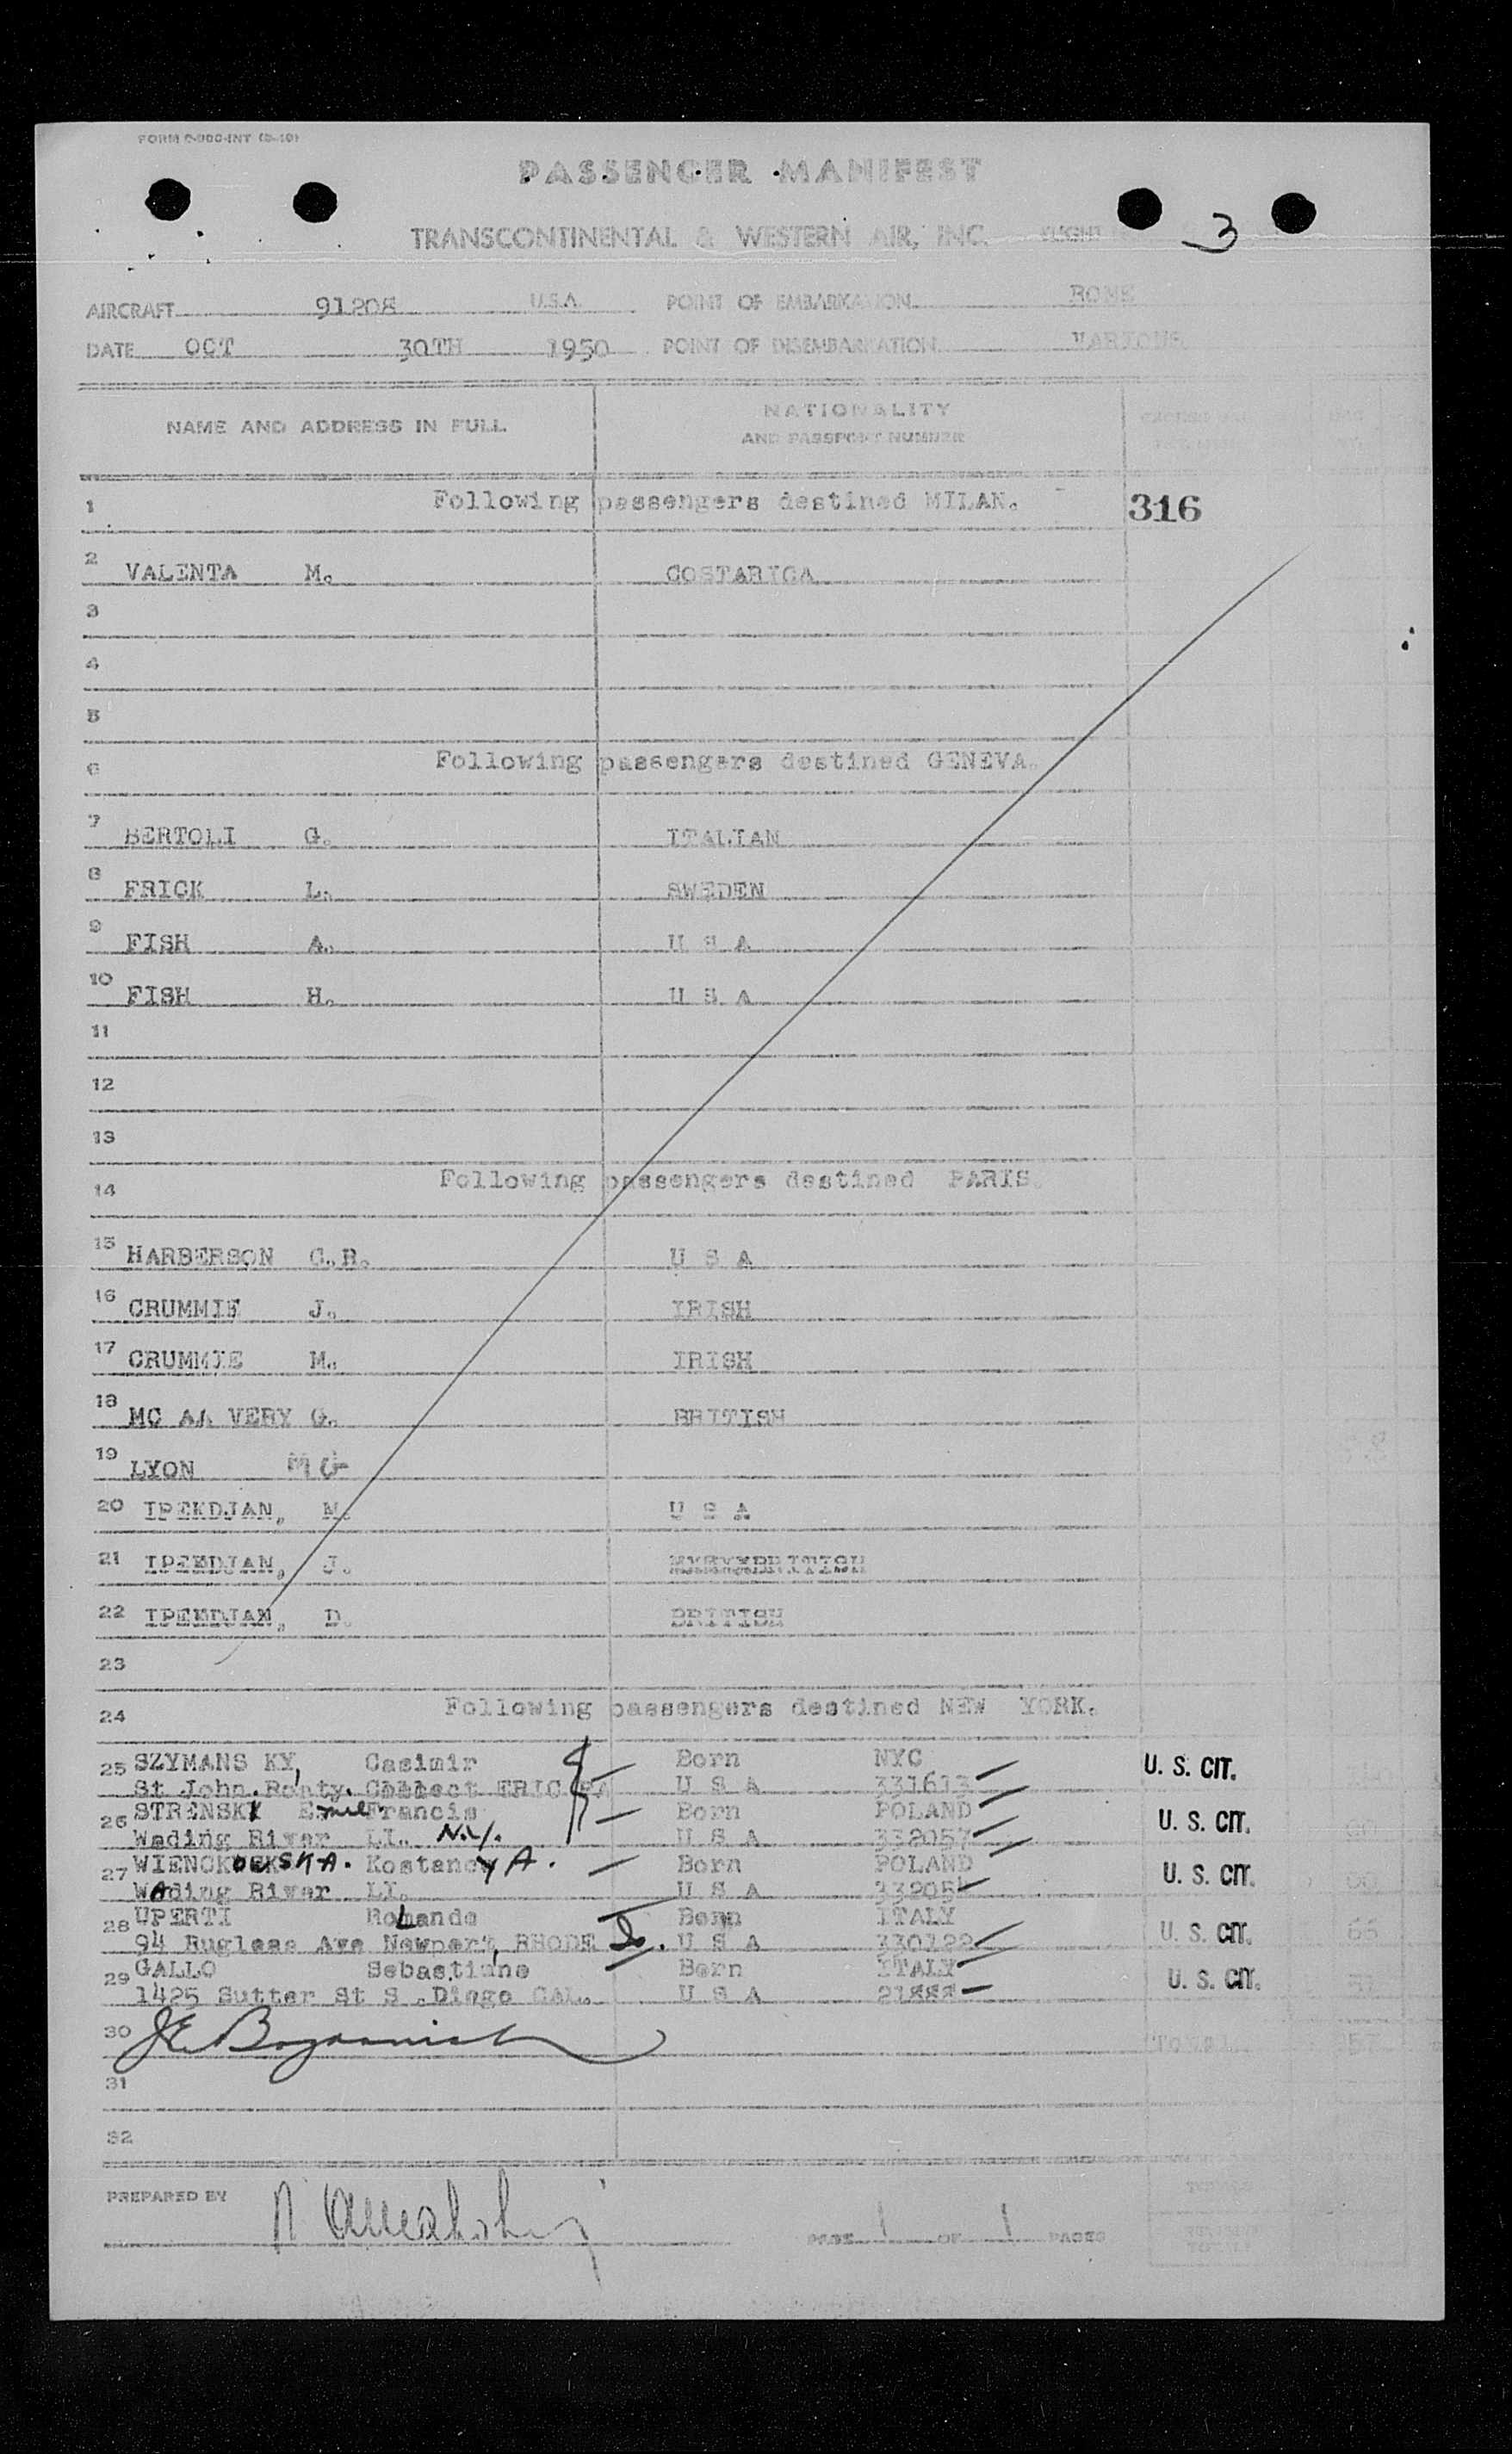 PASSENGER MANIFEST
TRANSCONTINENTAL & WESTERN AIR, INC. FLIGHT 3
AIRCRAFT 91208 U.S.A. POINT OF EMBARKATION ROME
DATE OCT 30TH 1950 POINT OF DISEMBARKATION VARIOUS
NAME AND ADDRESS IN FULL
NATIONALITY
AND PASSPORT NUMBER
1 Following passengers destined MILAN. 316
2 VALENTA M. COSTARIGA
3
4
5
6 Following passengers destined GENEVA.
7 BERTOLI G. ITALIAN
8 FRICK L. SWEDEN
9 FISH A. U S A
10 FISH H. U S A
11
12
13
14 Following passengers destined PARIS.
15 HARBERSON C.R. U S A
16 CRUMMIE J. IRISH
17 CRUMMIE M. IRISH
18 MC AA VERY G. BRITISH
19 LYON MG
20 IPEKDJAN, M. U S A
21 IPEKDJAN, J. BRITISH
22 IPEKDJAN, D. BRITISH
23
24 Following passengers destined NEW YORK.
25 SZYMANS KY, Casimir Born NYC U. S. CIT.
St John. Ronty. Collect ERIC PA U S A 331613
26 STRENSKY Emil Francis Born POLAND U. S. CIT.
Wading River LI. N.Y. U S A 332057
27 WIENCKOUSKA. Kostancy A. Born POLAND U. S. CIT.
Wading River LI. U S A
28 UPERTI Rolando Born ITALY U. S. CIT. 66
94 Rugless Ave Newport, RHODE Is. U S A 330122
29 GALLO Sebastiano Born ITALY U. S. CIT.
1425 Sutter St S. Diego CAL. U S A
30 Total 57
31
32
PREPARED BY
PAGE 1 OF 1 PAGES